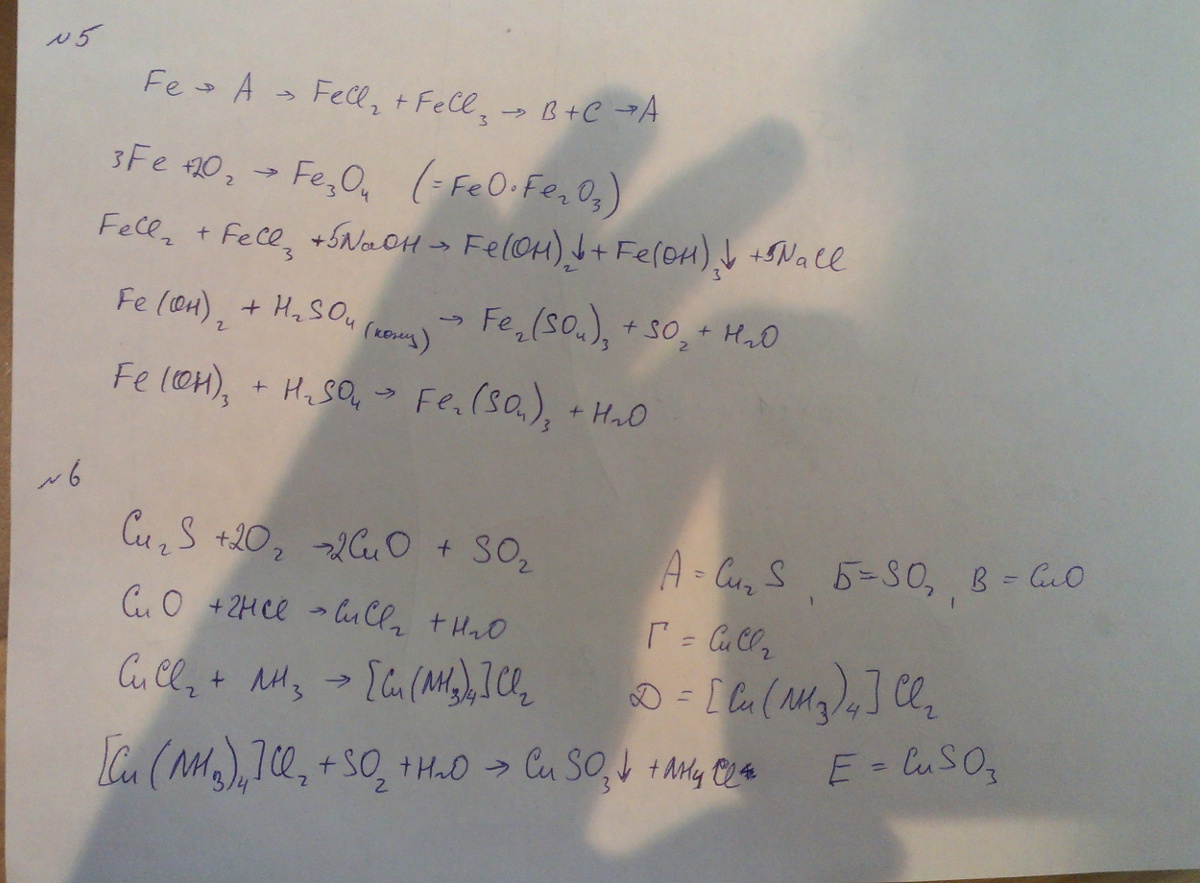 №5
Fe → A → FeCl₂ + FeCl₃ → B + C → A
3Fe + 2O₂ → Fe₃O₄ (= FeO·Fe₂O₃)
FeCl₂ + FeCl₃ + 5NaOH → Fe(OH)₂↓ + Fe(OH)₃↓ + 5NaCl
Fe(OH)₂ + H₂SO₄ (конц) → Fe₂(SO₄)₃ + SO₂ + H₂O
Fe(OH)₃ + H₂SO₄ → Fe₂(SO₄)₃ + H₂O
№6
Cu₂S + 2O₂ → 2CuO + SO₂
А = Cu₂S, Б = SO₂, В = CuO
CuO + 2HCl → CuCl₂ + H₂O
Г = CuCl₂
CuCl₂ + NH₃ → [Cu(NH₃)₄]Cl₂
Д = [Cu(NH₃)₄]Cl₂
[Cu(NH₃)₄]Cl₂ + SO₂ + H₂O → CuSO₃↓ + NH₄Cl
Е = CuSO₃